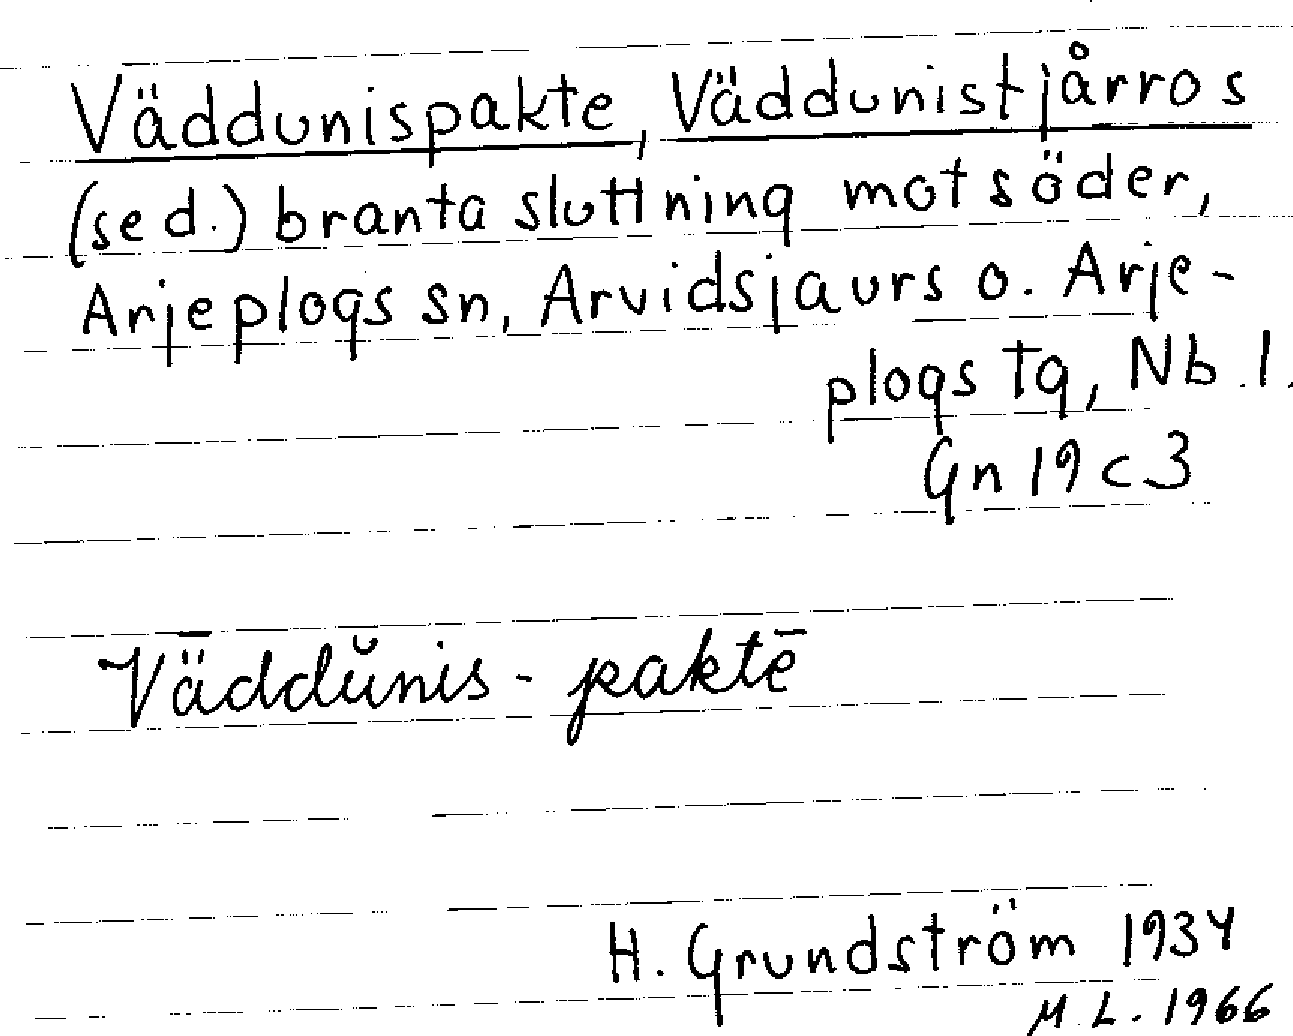 Väddunispakte, Väddunistjårros
(se d.) branta sluttning mot söder,
Arjeplogs sn, Arvidsjaurs o. Arje-
plogs tg, Nb. l.
Gn 19 c 3
Väddŭnis-paktē
H. Grundström 1934
M. L. 1966